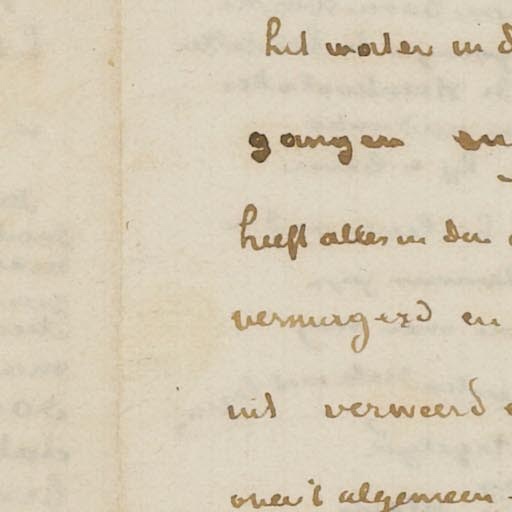 het water in d
gangen en
heeft alles in den
vermagerd en
uit verweerd
over 't algemeen